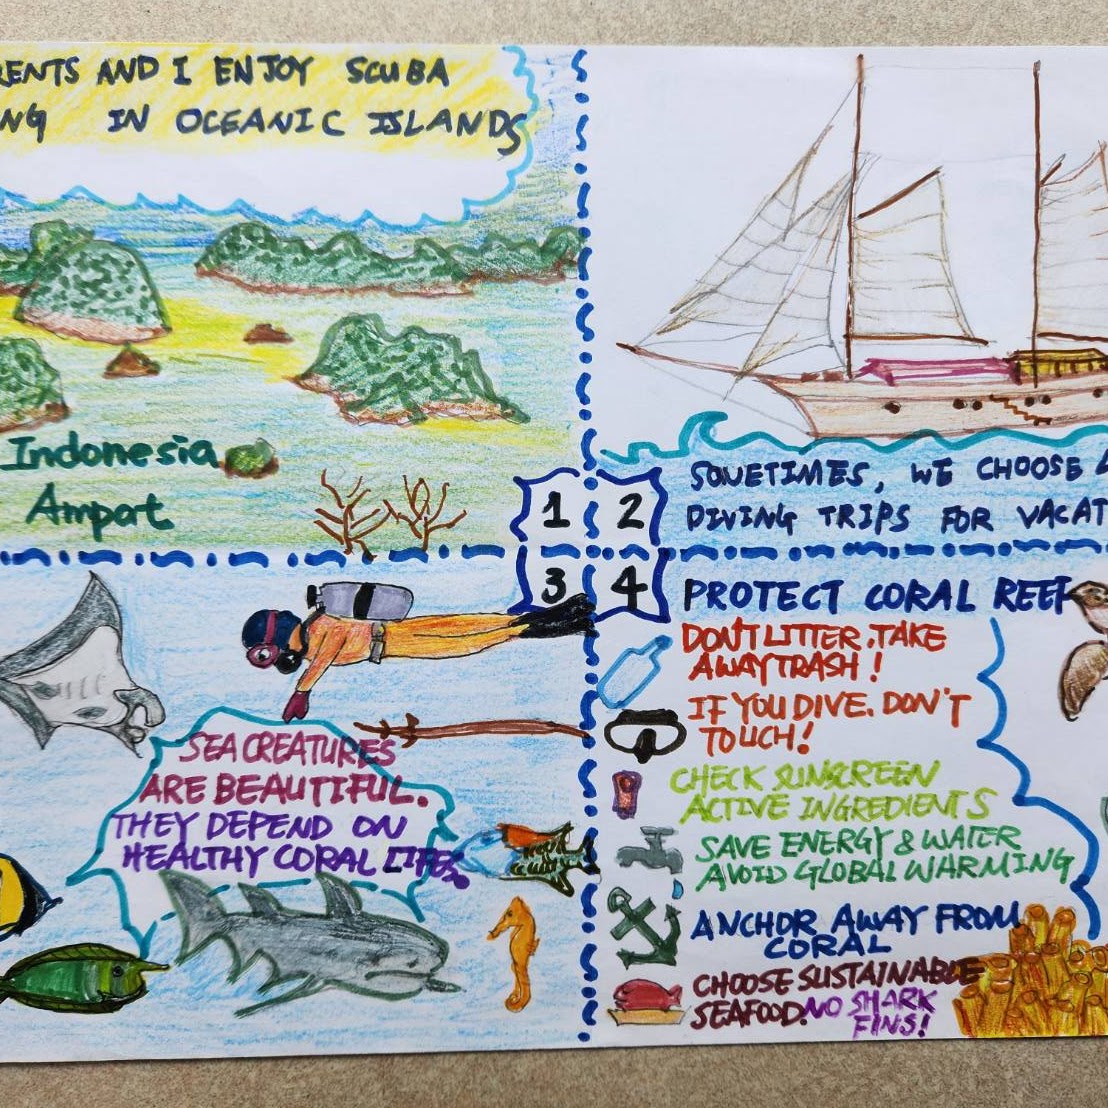 RENTS AND I ENJOY SCUBA
NG IN OCEANIC ISLANDS
Indonesia
Ampat
1
2
SOMETIMES, WE CHOOSE
DIVING TRIPS FOR VACAT
3
4
SEA CREATURES
ARE BEAUTIFUL.
THEY DEPEND ON
HEALTHY CORAL LIFE.
PROTECT CORAL REEF
DON'T LITTER. TAKE
AWAY TRASH!
IF YOU DIVE. DON'T
TOUCH!
CHECK SUNSCREEN
ACTIVE INGREDIENTS
SAVE ENERGY & WATER
AVOID GLOBAL WARMING
ANCHOR AWAY FROM
CORAL
CHOOSE SUSTAINABLE
SEAFOOD. NO SHARK
FINS!